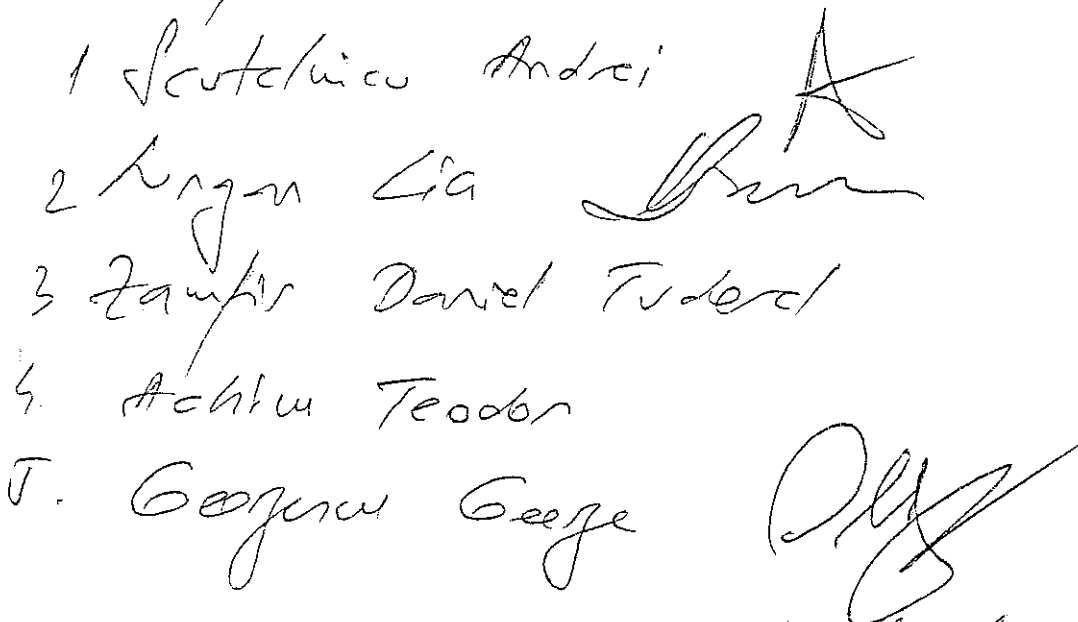 1 Scutelnicu Andrei
2 Lungan Lia
3 Zamfir Daniel Tudorel
4. Achim Teodor
5. Georgescu George